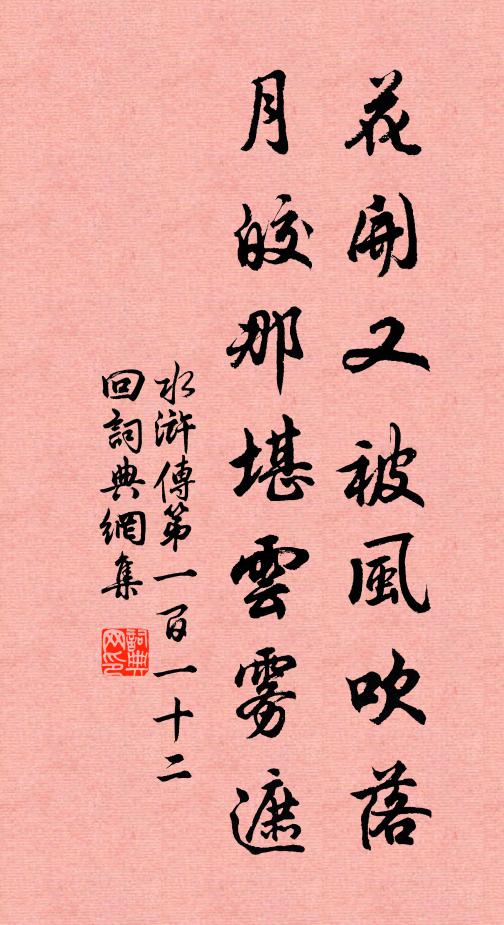 花開又被風吹落
月皎那堪雲雾遮
水滸傳第一百一十二
回詞典網集
詞典网印